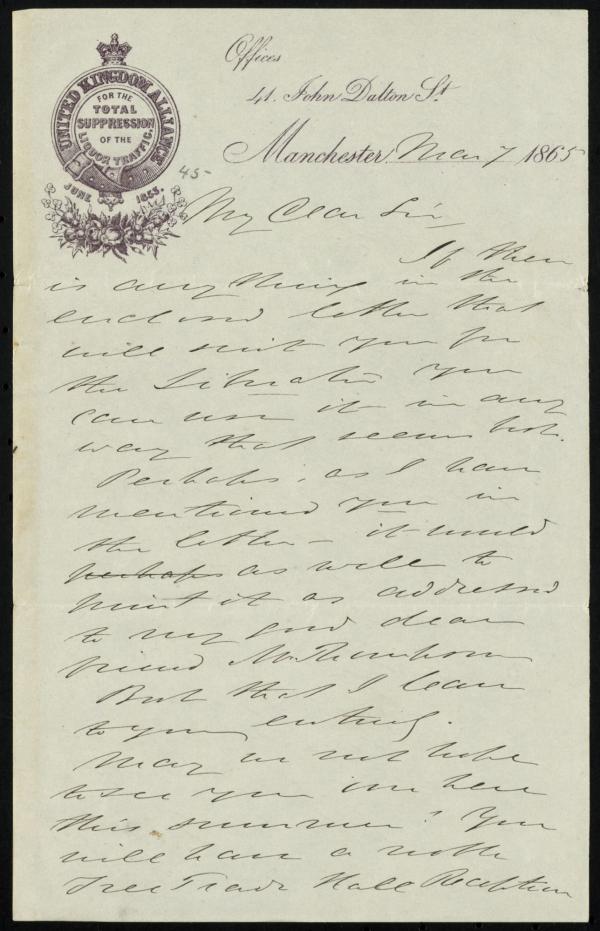 UNITED KINGDOM ALLIANCE
FOR THE
TOTAL
SUPPRESSION
OF THE
LIQUOR TRAFFIC.
JUNE 1853.
Offices
41. John Dalton St.
Manchester, Mar 7 1865
45-
My Dear Sir,
If there
is anything in the
enclosed letter that
will suit you for
the Liberator you
can use it in any
way that seems best.
Perhaps, as I have
mentioned you in
the letter - it would
perhaps as well to
print it as addressed
to my good dear
friend Mr. Thompson
But that I leave
to you entirely.
May we not hope
to see you over here
this summer? You
will have a noble
Free Trade Hall Reception